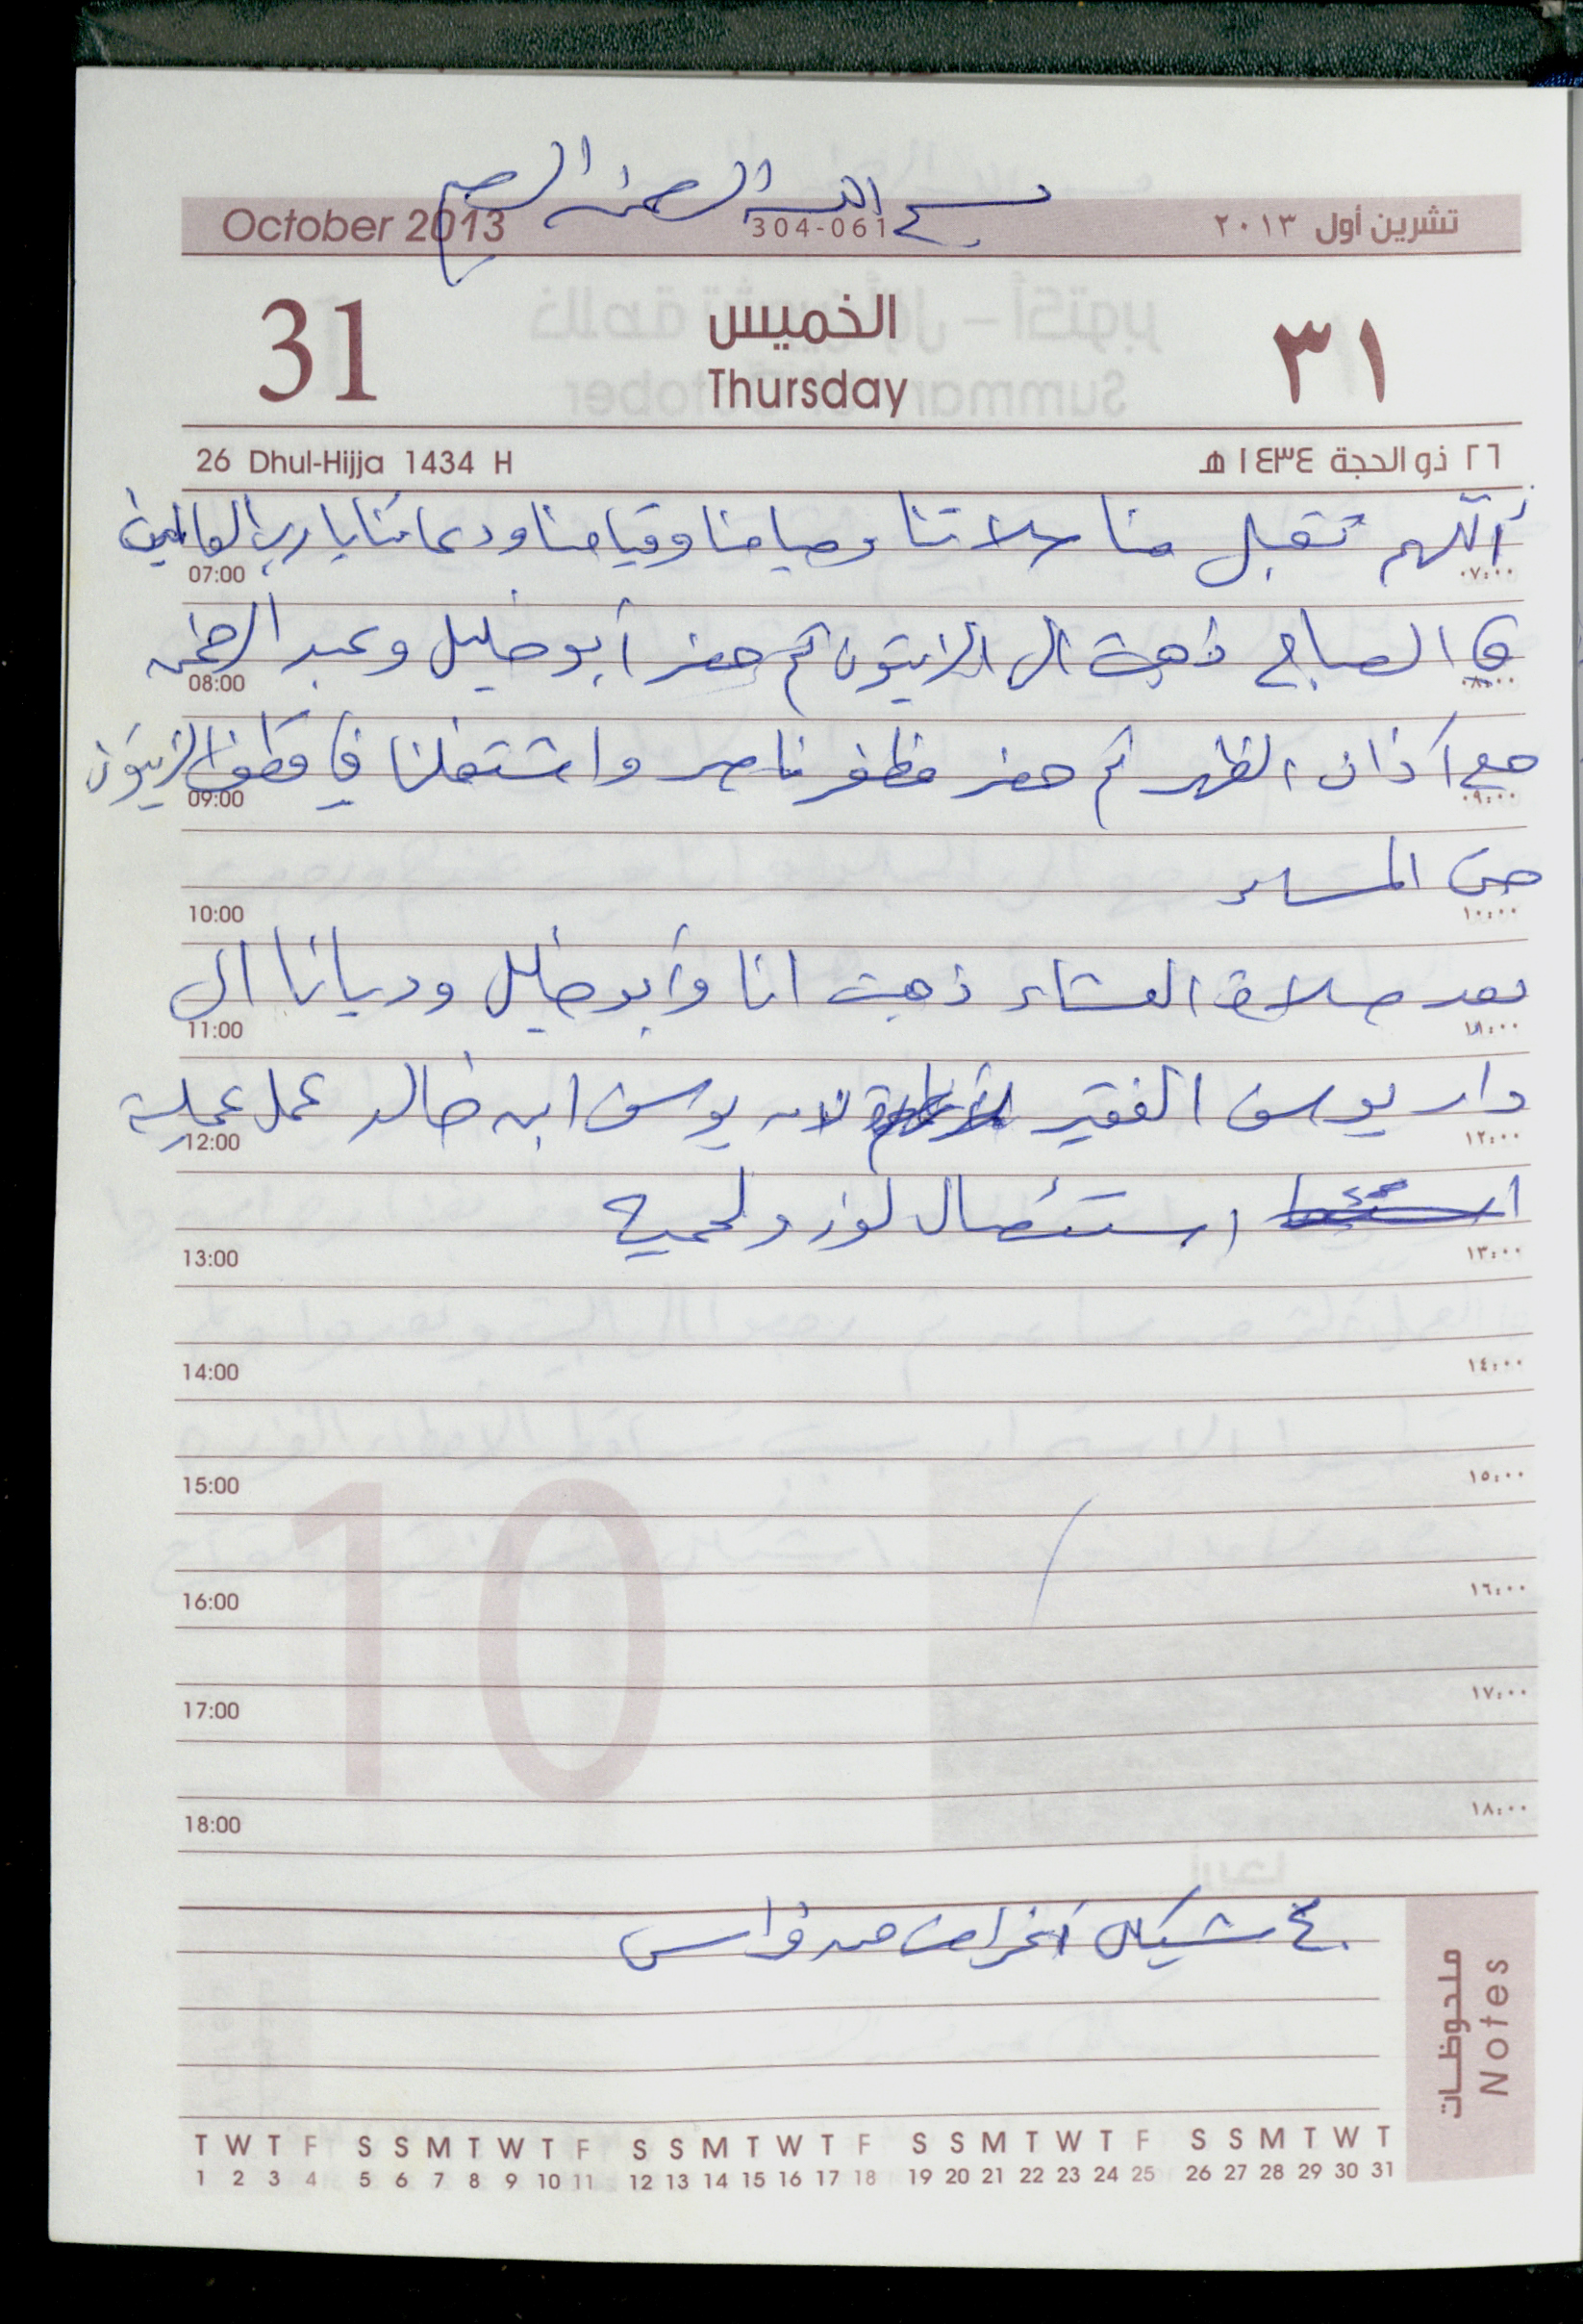 بسم الله الرحمن الرحيم
October 2013 304-061 تشرين أول ٢٠١٣
31 الخميس ٣١
Thursday
26 Dhul-Hijja 1434 H ٢٦ ذو الحجة ١٤٣٤ هـ
أللهم تقبل منا صلاتنا وصيامنا وقيامنا ودعائنا يا رب العالمين
07:00 ٠٧:٠٠
في الصباح ذهبت الى الزيتون ثم حضر أبو خليل وعبد الرحمن
08:00 ٠٨:٠٠
مع آذان الظهر ثم حضر مظفر ناصر واشتغلنا في قطف الزيتون
09:00 ٠٩:٠٠
حتى المساء
10:00 ١٠:٠٠
بعد صلاة العشاء ذهبت انا وأبو خليل وديانا الى
11:00 ١١:٠٠
دار يوسف الفقير لان يوسف ابن خالد عمل عملية
12:00 ١٢:٠٠
استئصال لوز ولحمية
13:00 ١٣:٠٠
14:00 ١٤:٠٠
15:00 ١٥:٠٠
16:00 ١٦:٠٠
10
17:00 ١٧:٠٠
18:00 ١٨:٠٠
٤٠ شيكل من فراس
ملحوظات
Notes
T W T F S S M T W T F S S M T W T F S S M T W T F S S M T W T
1 2 3 4 5 6 7 8 9 10 11 12 13 14 15 16 17 18 19 20 21 22 23 24 25 26 27 28 29 30 31